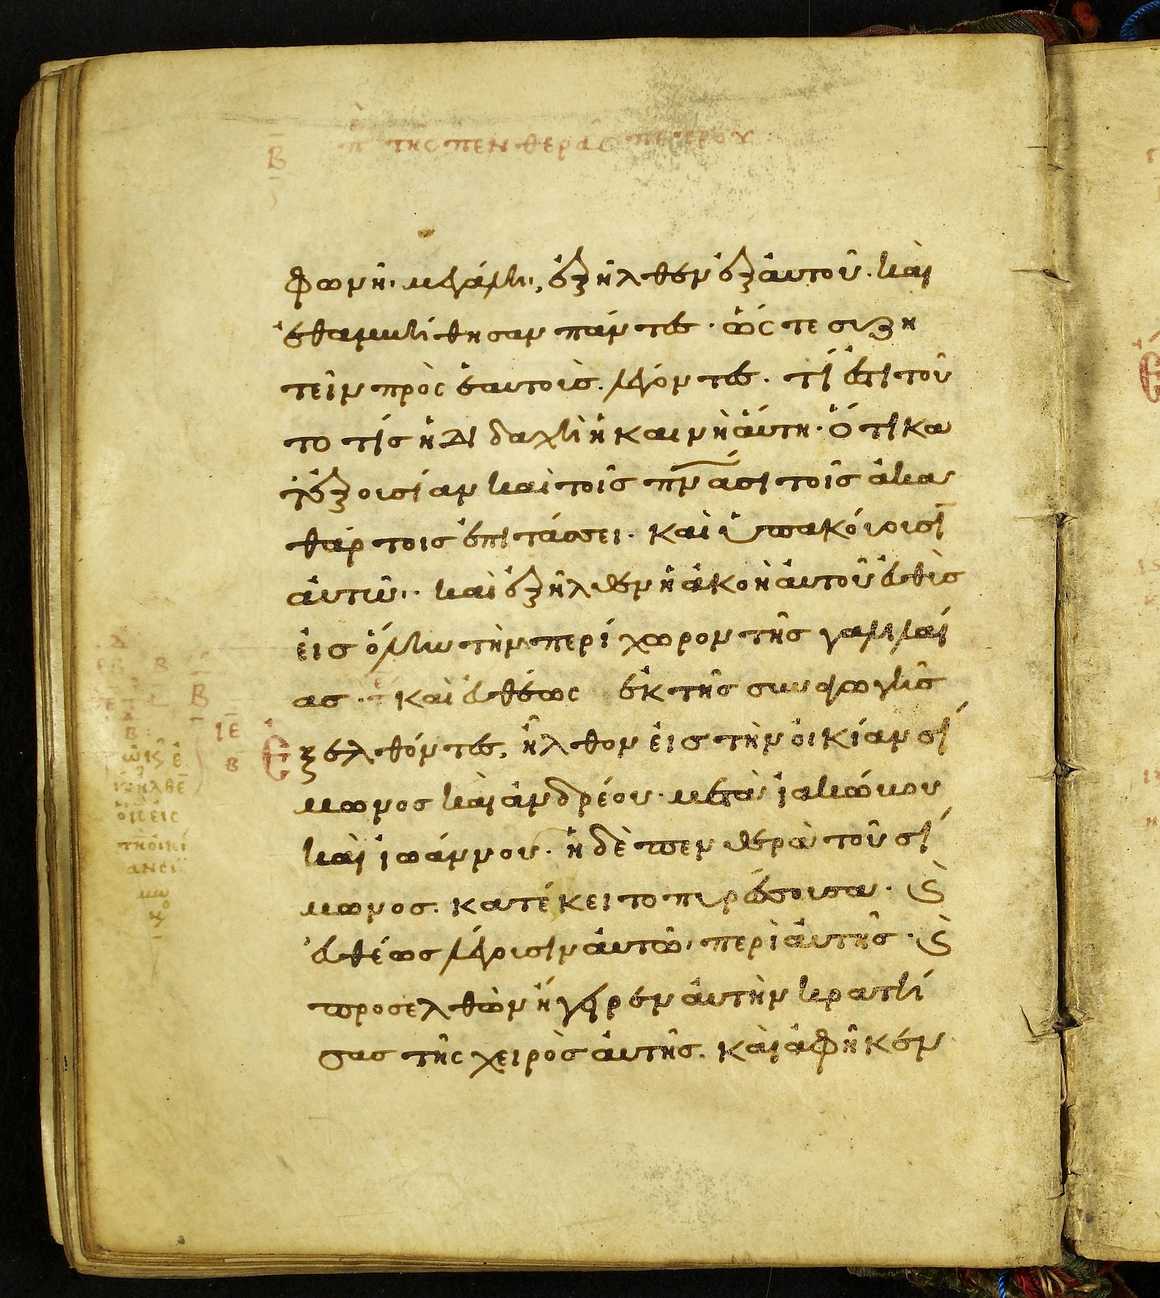 Β π τῆς πενθερᾶς πέτρου
φωνῆ· μεγάλη, ἐξῆλθεν ἐξ ἀυτοῦ· καὶ
ἐθαμβήθησαν πάντες· ὥς τε συζη
τεῖν πρὸς ἑαυτοὺς. λέγοντες· τί ἐστι τοῦ
το τίς ἡ διδαχὴ ἡ καινὴ ἁύτη· ὅτι κα
τ᾽ ἐξουσίαν καὶ τοῖς πν̅ασι τοῖς ἀκα
θάρτοις ἐπιτάσσει· καὶ ὑπακούουσι
ἀυτῶ·· καὶ ἐξῆλθεν ἡ ἀκοὴ ἀυτοῦ ἐυθὺς
ἐις ὅλην τὴν περίχωρον τῆς γαλιλαί
ας· καὶ ἐυθέως ἐκ τῆς συναγωγῆς
ΙΕ
Β
Ἐξελθόντες, ἦλθον ἐις τὴν ὀικίαν σί
μωνος καὶ ἀνδρέου· μετὰ ἰακώβου
καὶ ἰωάννου· ἡ δὲ πενθερὰ τοῦ σί
μωνος. κατέκειτο πυρέσσουσα· ϗ
ἐυθέως λέγουσιν ἀυτῶ· περὶ ἀυτῆς· ϗ
προσελθὼν ἤγειρεν ἀυτὴν κρατή
σας τῆς χειρὸς ἀυτῆς. καὶ ἀφῆκεν